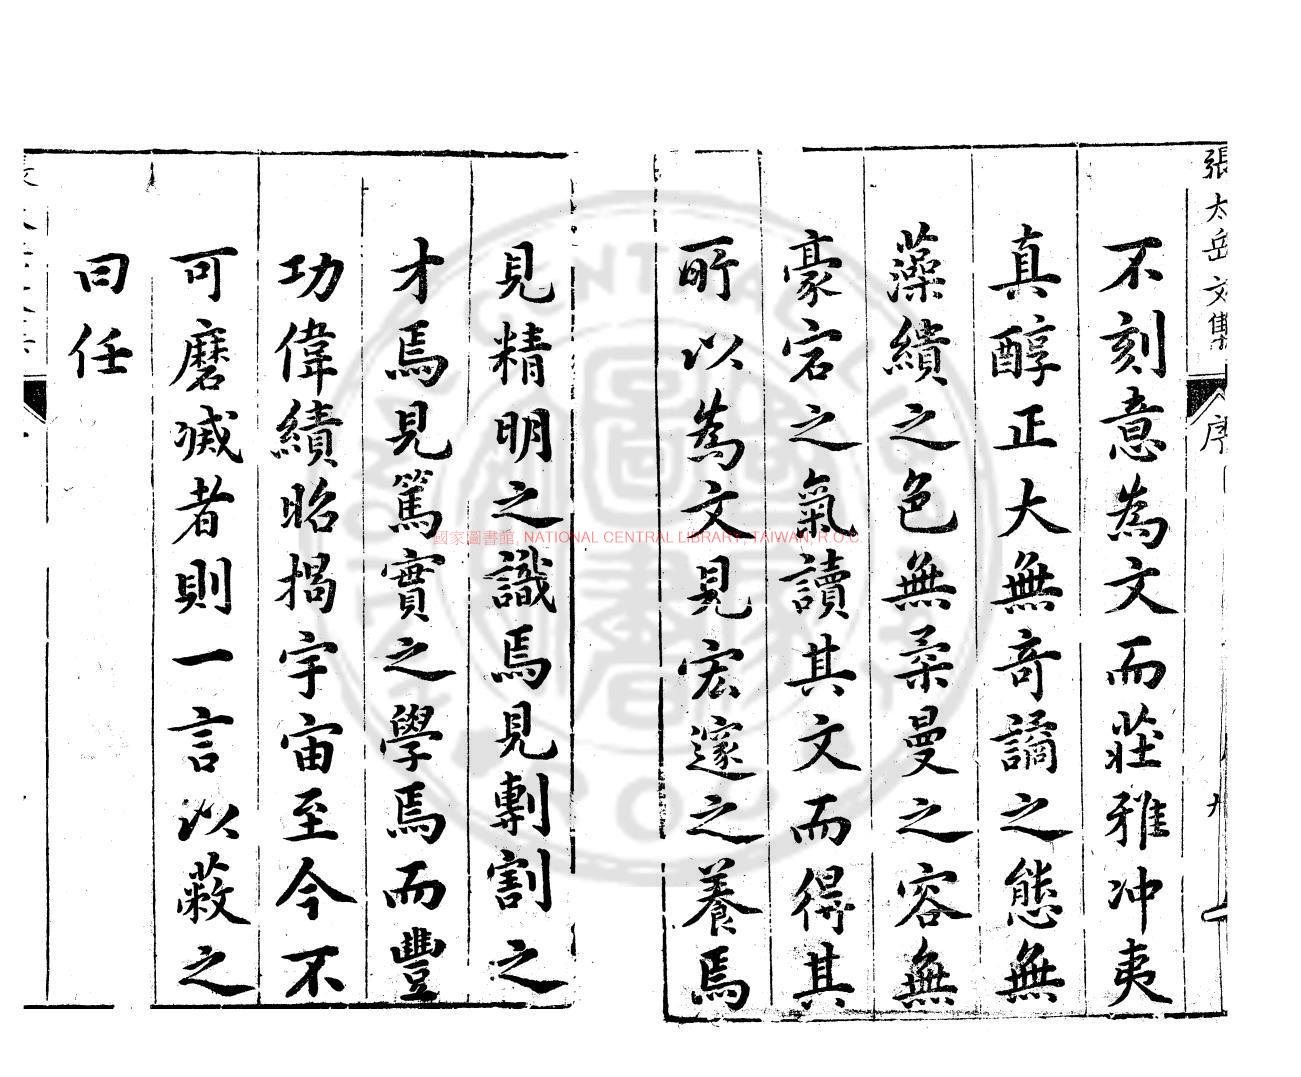 張太岳文集 序 九
不刻意為文而莊雅冲夷
真醇正大無奇譎之態無
藻繢之色無柔曼之容無
豪宕之氣讀其文而得其
所以為文見宏邃之養焉
見精明之識焉見剸割之
才焉見篤實之學焉而豐
功偉績昭揭宇宙至今不
可磨滅者則一言以蔽之
曰任
國家圖書館, NATIONAL CENTRAL LIBRARY, TAIWAN, R.O.C.